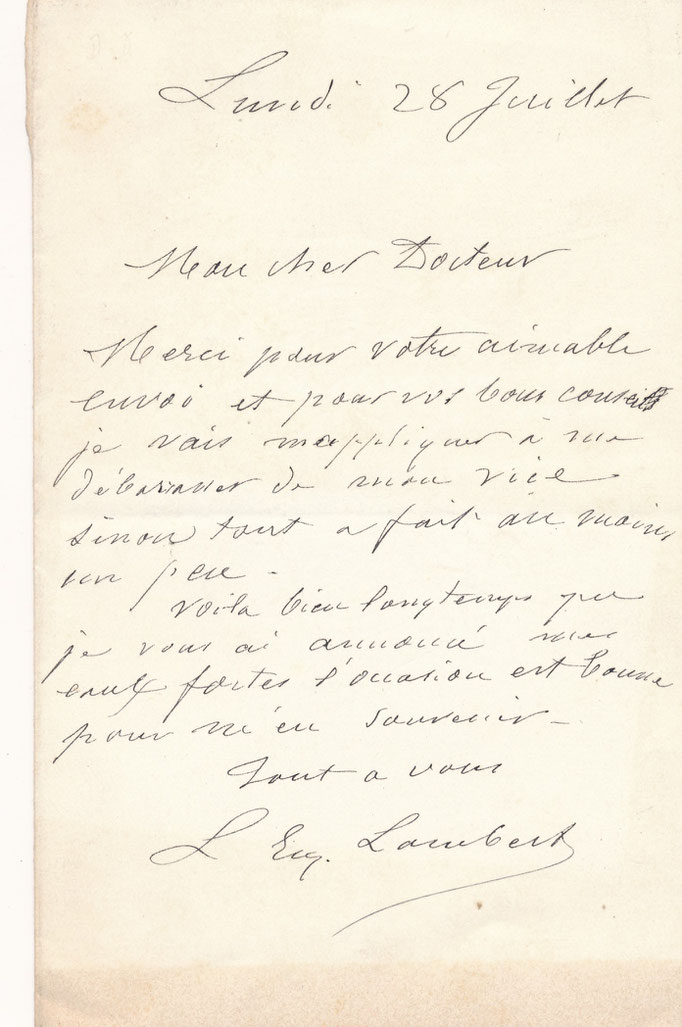 Lundi 28 Juillet
Mon cher Docteur
Merci pour votre aimable
envoi et pour vos bons conseils
je vais m'appliquer à me
débarrasser de mon vice
sinon tout a fait au moins
un peu -
Voila bien longtemps que
je vous ai annoncé mes
eaux fortes l'occasion est bonne
pour m'en souvenir -
Tout a vous
L Eug. Lambert